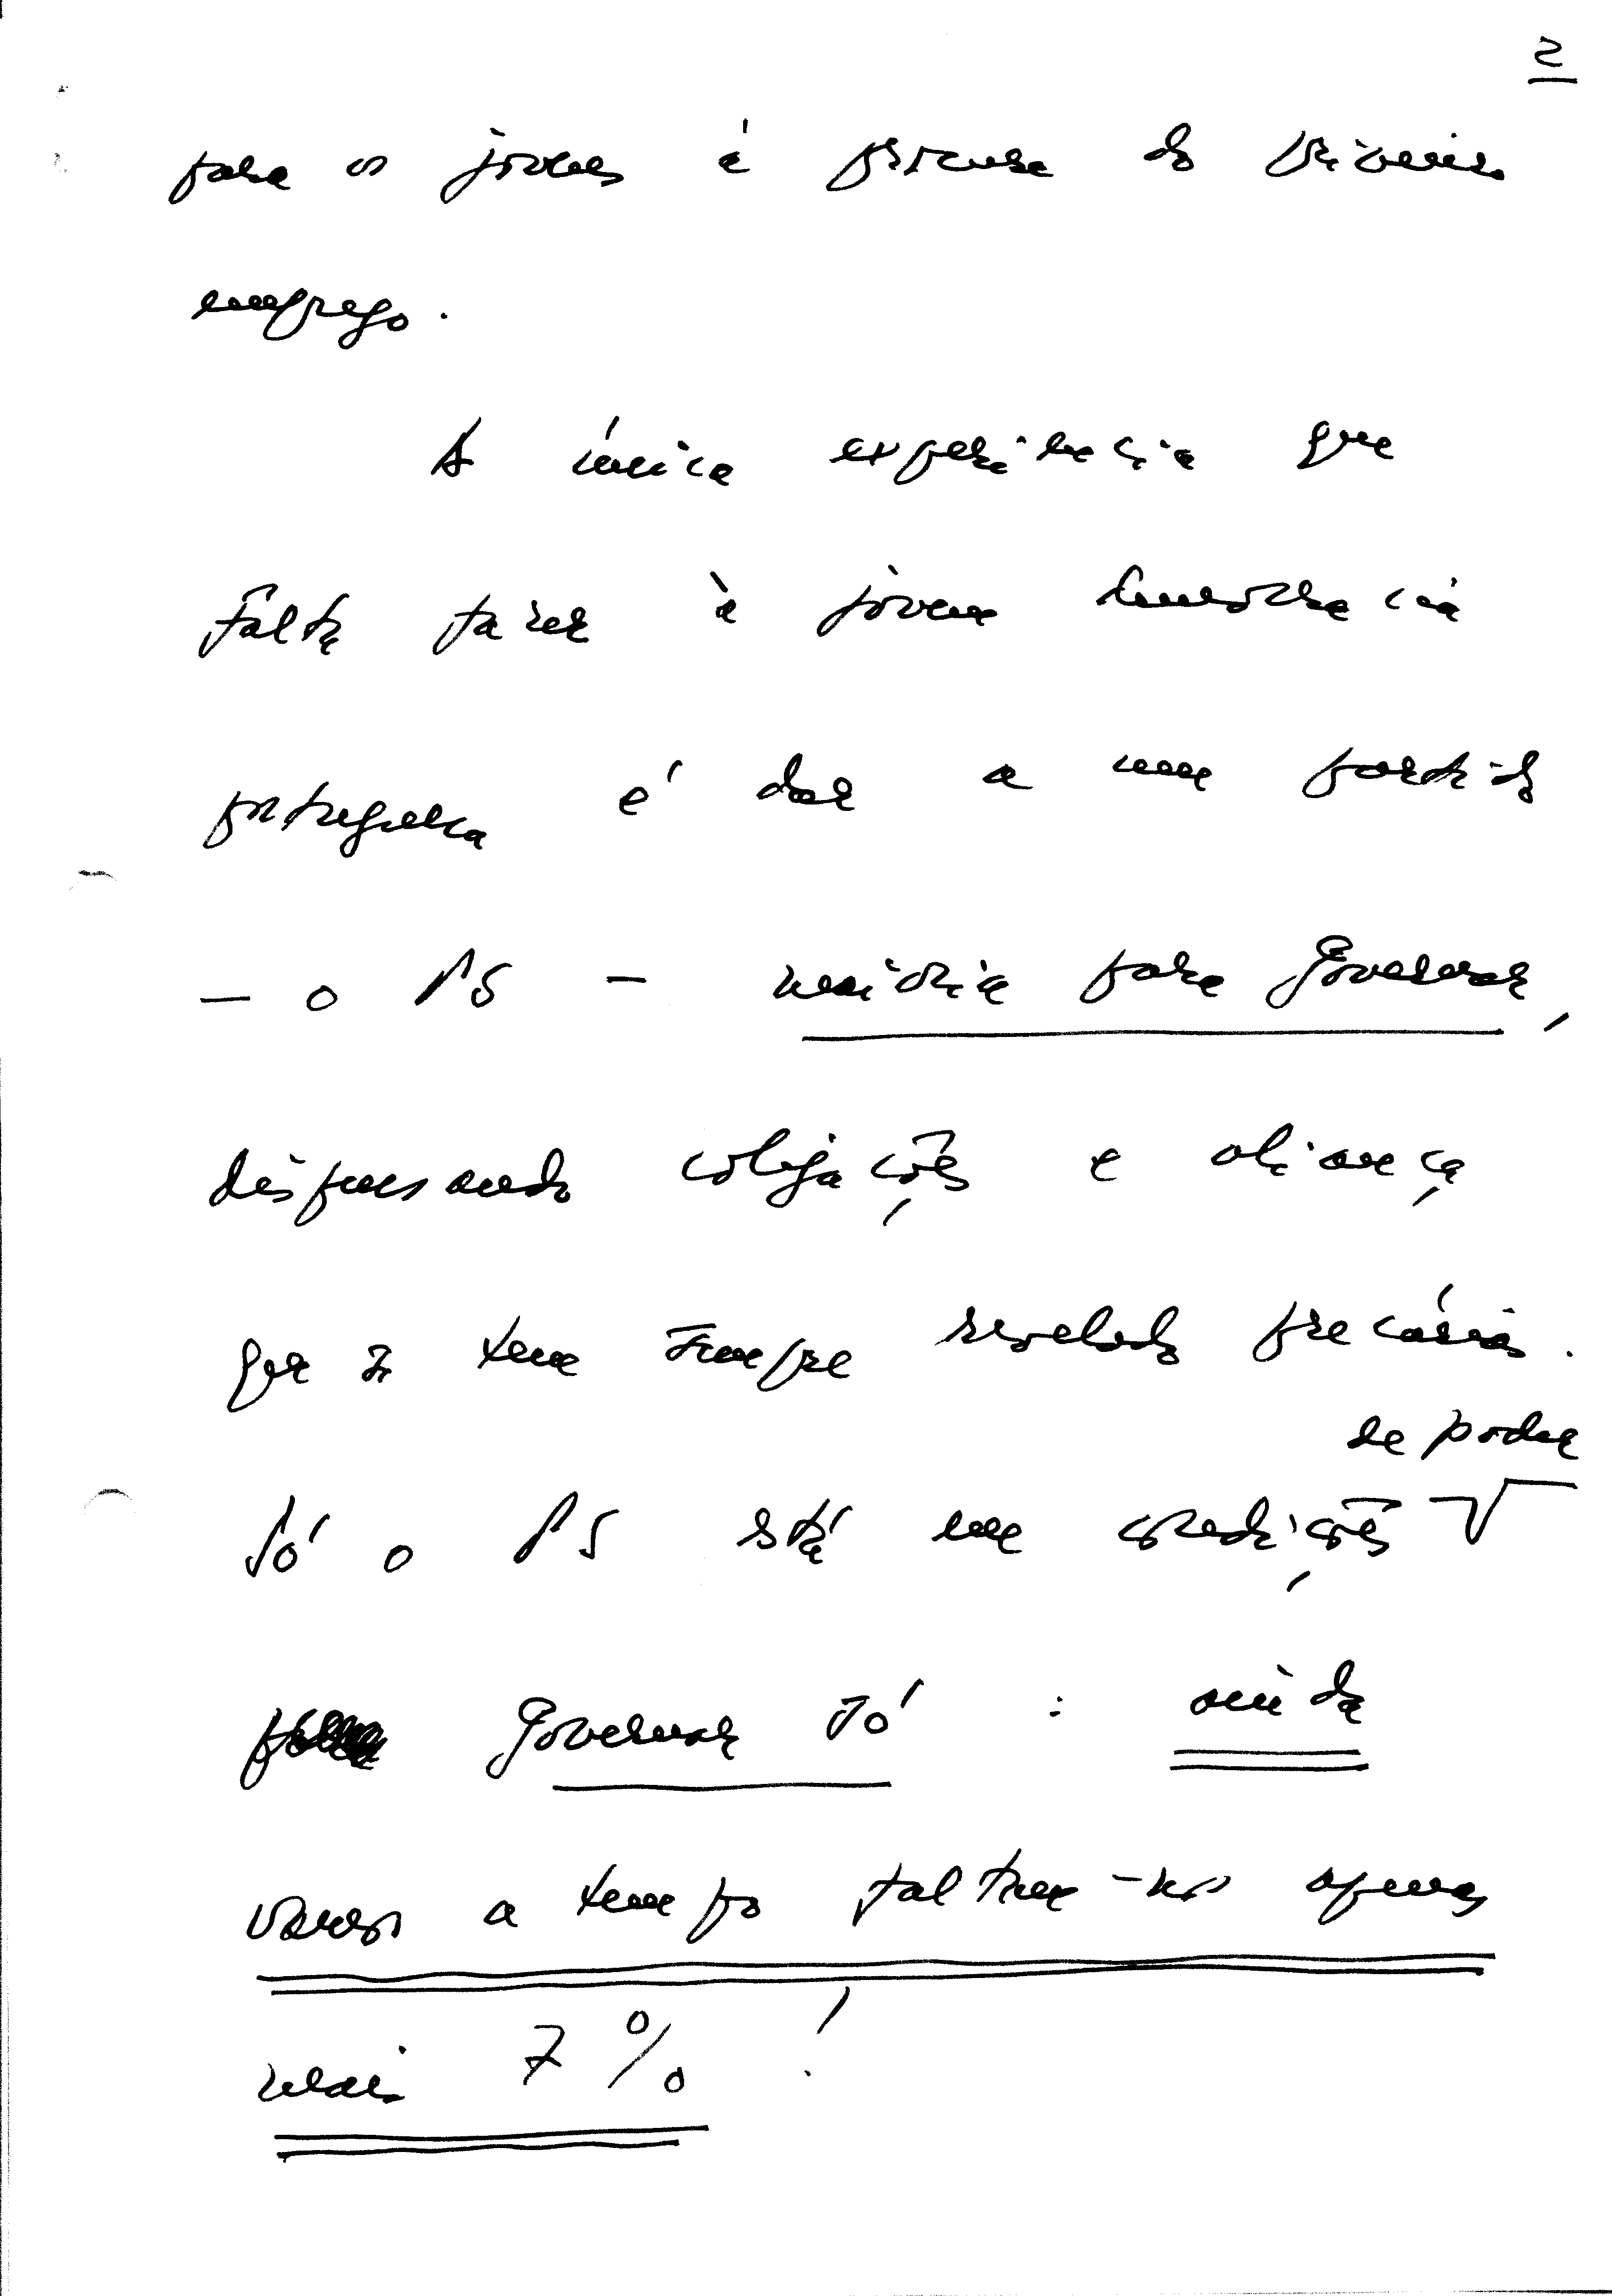 2
para os jovens à procura do primeiro
emprego.
A única experiência que
falta fazer à jovem democracia
portuguesa é dar a um partido
— o PS — maioria para governar,
dispensando coligações e aliança
que se tem sempre revelado precárias.
de poder
Só o PS está em condições
governar só : ainda
vamos a tempo faltam-nos apenas
mais 7% !